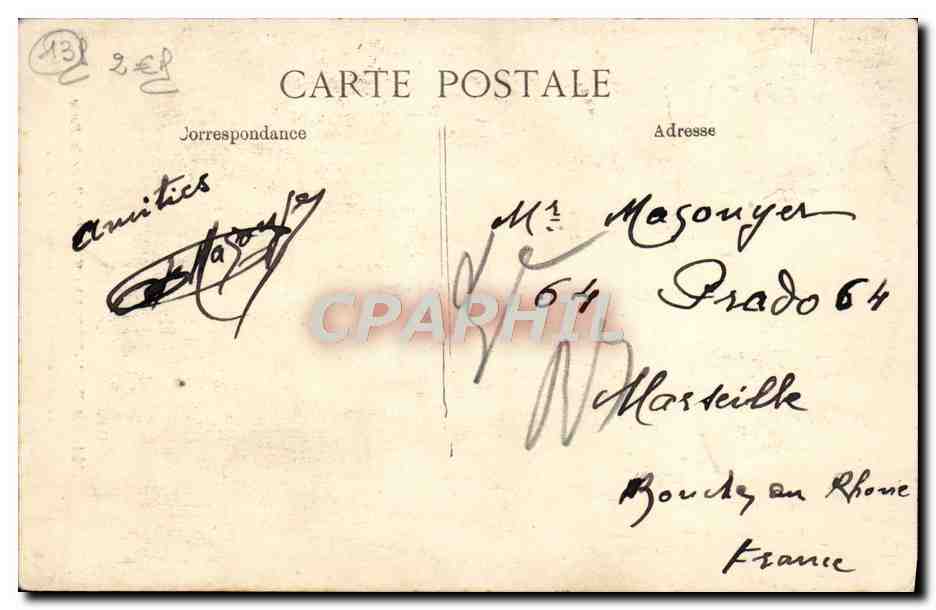 138
2€
CARTE POSTALE
Correspondance
Adresse
amitiés
Mr Mazouyer
64 Prado 64
Marseille
Bouches du Rhone
France
CPARPHIL